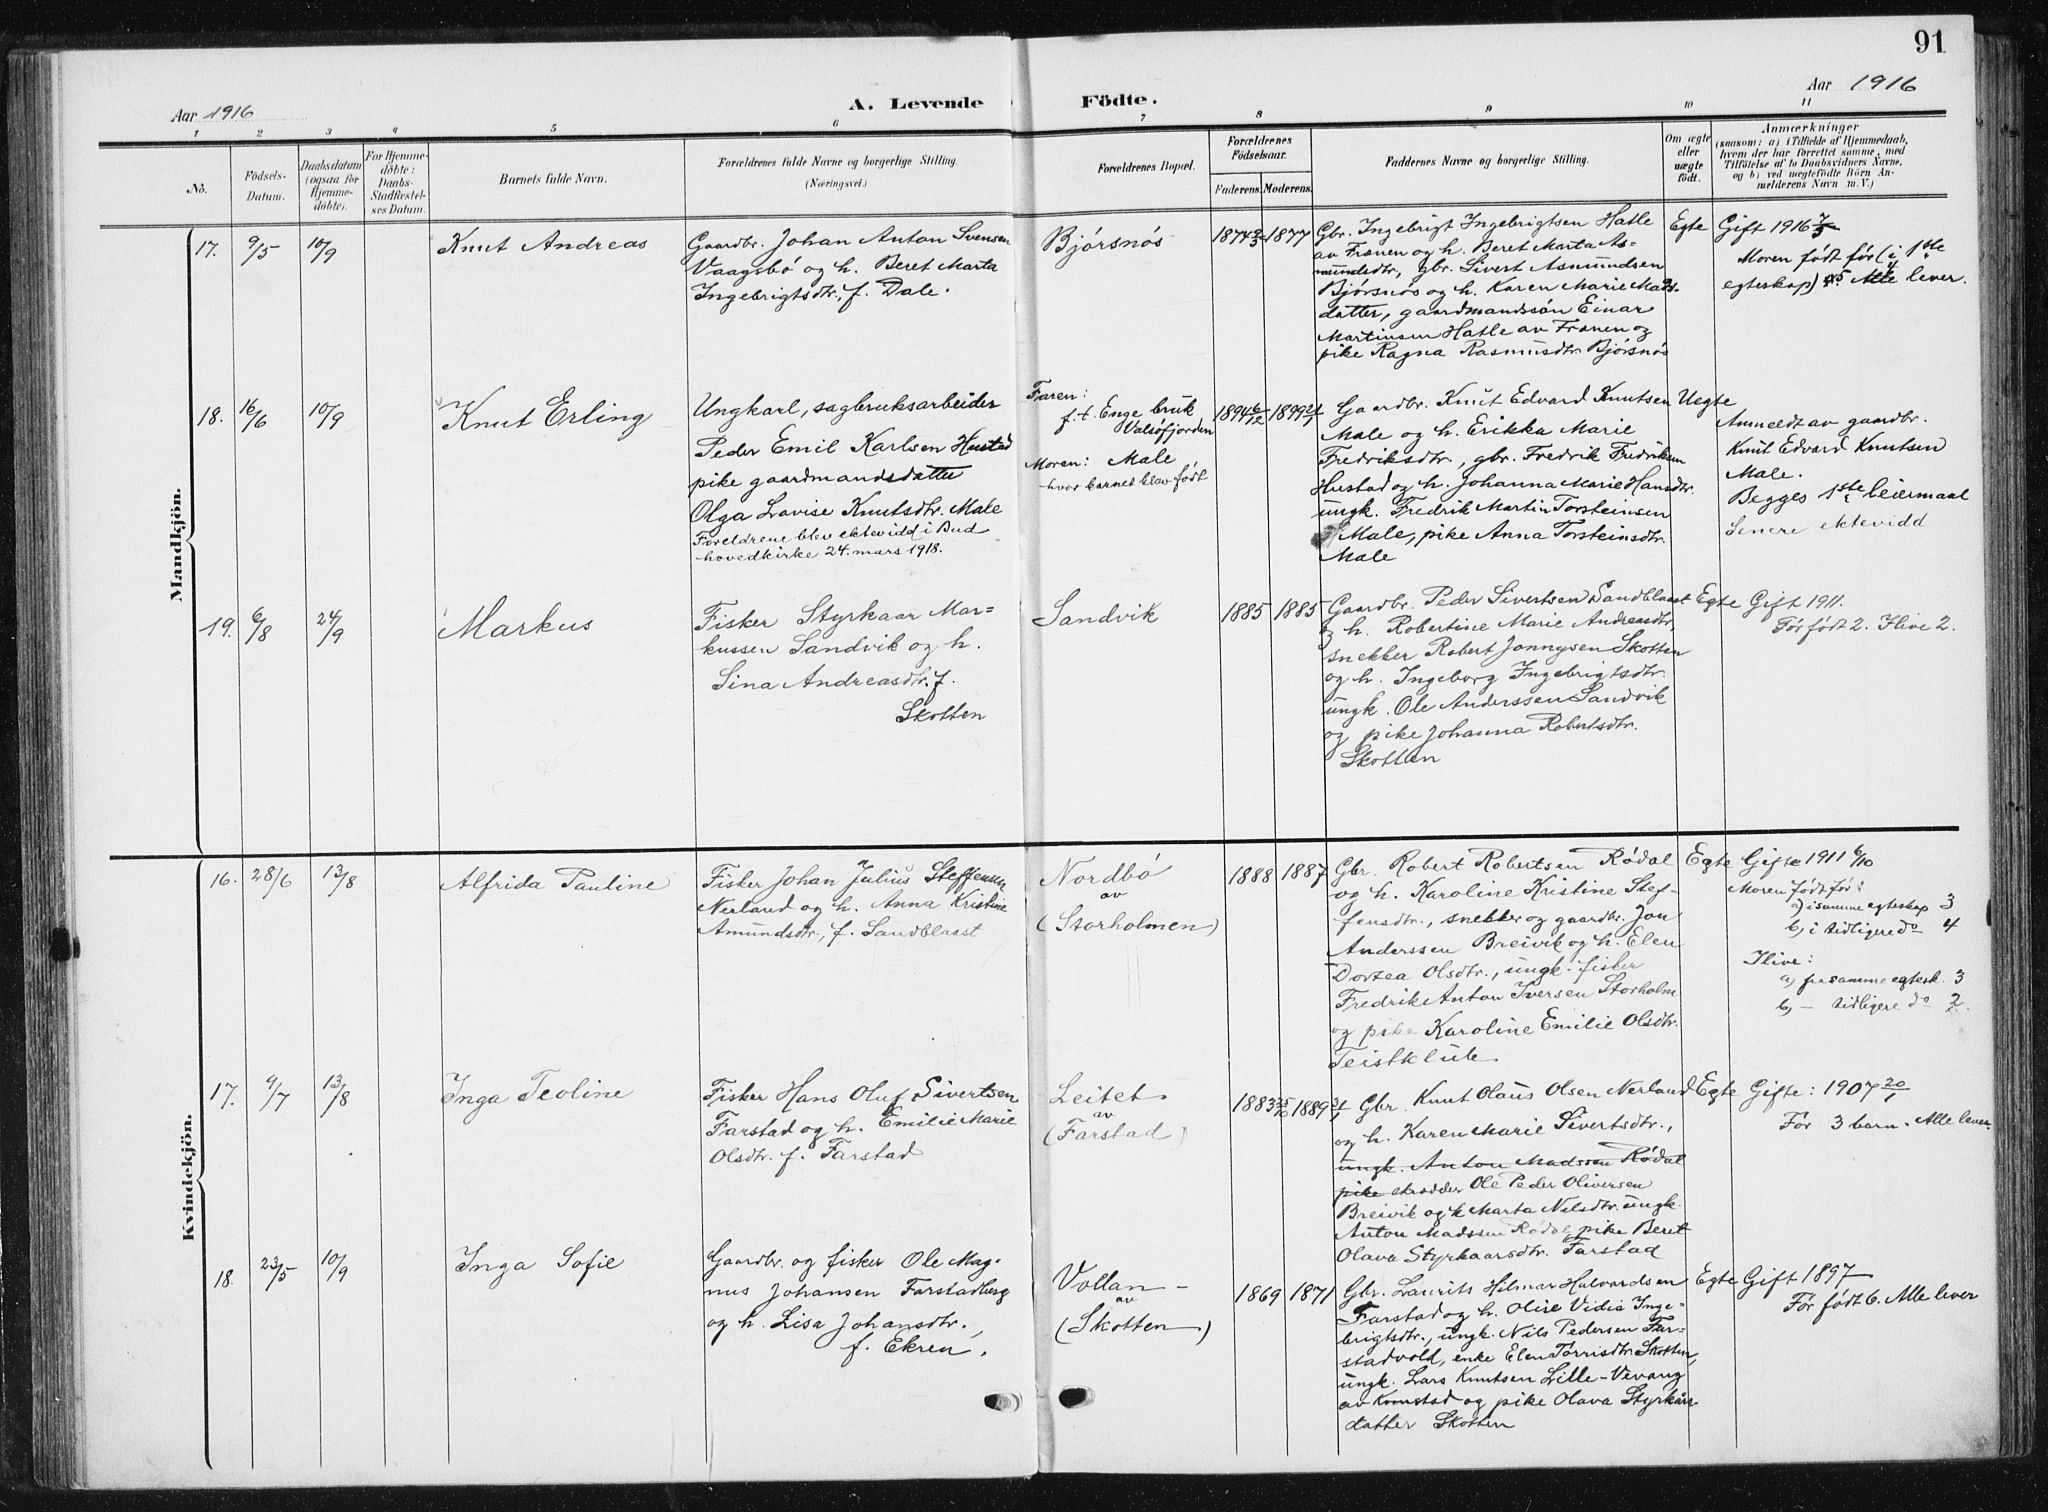 91
Aar 1916
A. Levende
Födte.
Aar 1916
1 2 3 4 5 6 7 8 9 10 11
No.
Födsels-
Datum.
Daabsdatum
(ogsaa for
Hjemme-
döbte).
For Hjemme-
döbte:
Daabs-
Stadfæstel-
ses Datum.
Barnets fulde Navn.
Forældrenes fulde Navne og borgerlige Stilling.
(Næringsvei.)
Forældrenes Bopæl.
Forældrenes
Födselsaar.
Faderens. Moderens.
Faddernes Navne og borgerlige Stilling.
Om ægte
eller
uægte
født.
Anmærkninger
(saasom: a) i Tilfælde af Hjemmedaab,
hvem der har forrettet samme, med
Tilføielse af to Daabsvidners Navne,
og b) ved uægtefödte Börn An-
melderens Navn m. V.)
Mandkjön.
17. 9/5 10/9
Knut Andreas
Gaardbr. Johan Anton Svensen
Vaagsbö og h. Beret Marta
Ingebrigtsdtr., f. Dale.
Bjørsnös
1874 1877
Gbr. Ingebrigt Ingebrigtsen Hatle
av Frænen og h. Beret Marta As-
mundsdtr, gbr. Sivert Asmundsen
Bjørsnös og h. Karen Marie Mads-
datter, gaardmandssön Einar
Martinsen Hatle av Frænen og
pike Ragna Rasmusdtr. Bjørsnös
Egte
Gift 1916
Moren født før (i 1ste
egteskap) 5 Alle lever.
18. 16/6 10/9
Knut Erling
Ungkarl, sagbruksarbeider
Peder Emil Karlsen Hustad
pike gaardmandsdatter
Olga Lovise Knutsdtr. Male
Foreldrene blev ektevidd i Bud
hovedkirke 24. mars 1918.
Faren:
f.t. Enge bruk
Valsöfjorden
Moren: Male
hvor barnet blev født
1894 6/12 1899
Gaardbr. Knut Edvard Knutsen
Male og h. Erikka Marie
Fredriksdtr., gbr. Fredrik Fredriksen
Hustad og h. Johanna Marie Hansdtr.
ungk. Fredrik Martin Torsteinsen
Male, pike Anna Torsteinsdtr.
Male
Uegte
Anmeldt av gaardbr.
Knut Edvard Knutsen
Male.
Begges 1ste leiermaal
Senere ektevidd
19. 6/8 24/9
Markus
Fisker Styrkaar Mar=
kussen Sandvik og h.
Sina Andreasdtr. f.
Skotten
Sandvik
1885 1885
Gaardbr. Peder Sivertsen Sandblaast
og h. Robertine Marie Andreasdtr,
snekker Robert Jonnysen Skotten
og h. Ingeborg Ingebrigtsdtr.
ungk. Ole Anderssen Sandvik
og pike Johanna Robertsdtr.
Skotten
Egte
Gift 1911.
Før født 2. Ilive 2.
Kvindekjön.
16. 28/6 13/8
Alfrida Pauline
Fisker Johan Julius Steffensen
Nerland og h. Anna Kristine
Amundsdtr., f. Sandblaast
Nordbö
av
(Storholmen)
1888 1887
Gbr. Robert Robertsen Rødal
og h. Karoline Kristine Stef-
fensdtr., snekker og gaardbr. Jon
Anderssen Breivik og h. Elen
Dortea Olsdtr., ungk. fisker
Fredrik Anton Iversen Storholm
og pike Karoline Emilie Olsdtr.
Teistklub
Egte
Gifte 1911 6/10
Moren født før:
a) i samme egteskap 3
b, i tidligere do 4
Ilive:
a, fra samme egtesk. 3
b, – tidligere do 2.
17. 9/7 13/8
Inga Teoline
Fisker Hans Oluf Sivertsen
Farstad og h. Emilie Marie
Olsdtr. f. Farstad
Leitet
av
(Farstad)
1883 1889
Gbr. Knut Olaus Olsen Nerland
og h. Karen Marie Sivertsdtr.,
ungk. Anton Madssen Rödal
pike skrædder Ole Peder Oliversen
Breivik og h Marta Nilsdtr. ungk.
Anton Madssen Rødal, pike Beret
Olava Styrkaarsdtr. Farstad
Egte
Gifte: 1907 20/1
Før 3 barn. Alle lever.
18. 23/5 10/9
Inga Sofie
Gaardbr. og fisker Ole Mag-
nus Johansen Farstadberg
og h. Lisa Johansdtr.,
f. Ekren.
Vollan
av
(Skotten)
1869 1871
Gbr. Laurits Hilmar Halvardsen
Farstad og h. Olise Vidia Inge-
brigtsdtr., ungk. Nils Pedersen Far-
stadvold, enke Elen Torrisdtr. Skotten,
ungk. Lars Knutsen Lille-Vevang
av Kornstad og pike Olava Styrkårs-
datter Skotten
Egte
Gift 1897
Før født 6. Alle lever